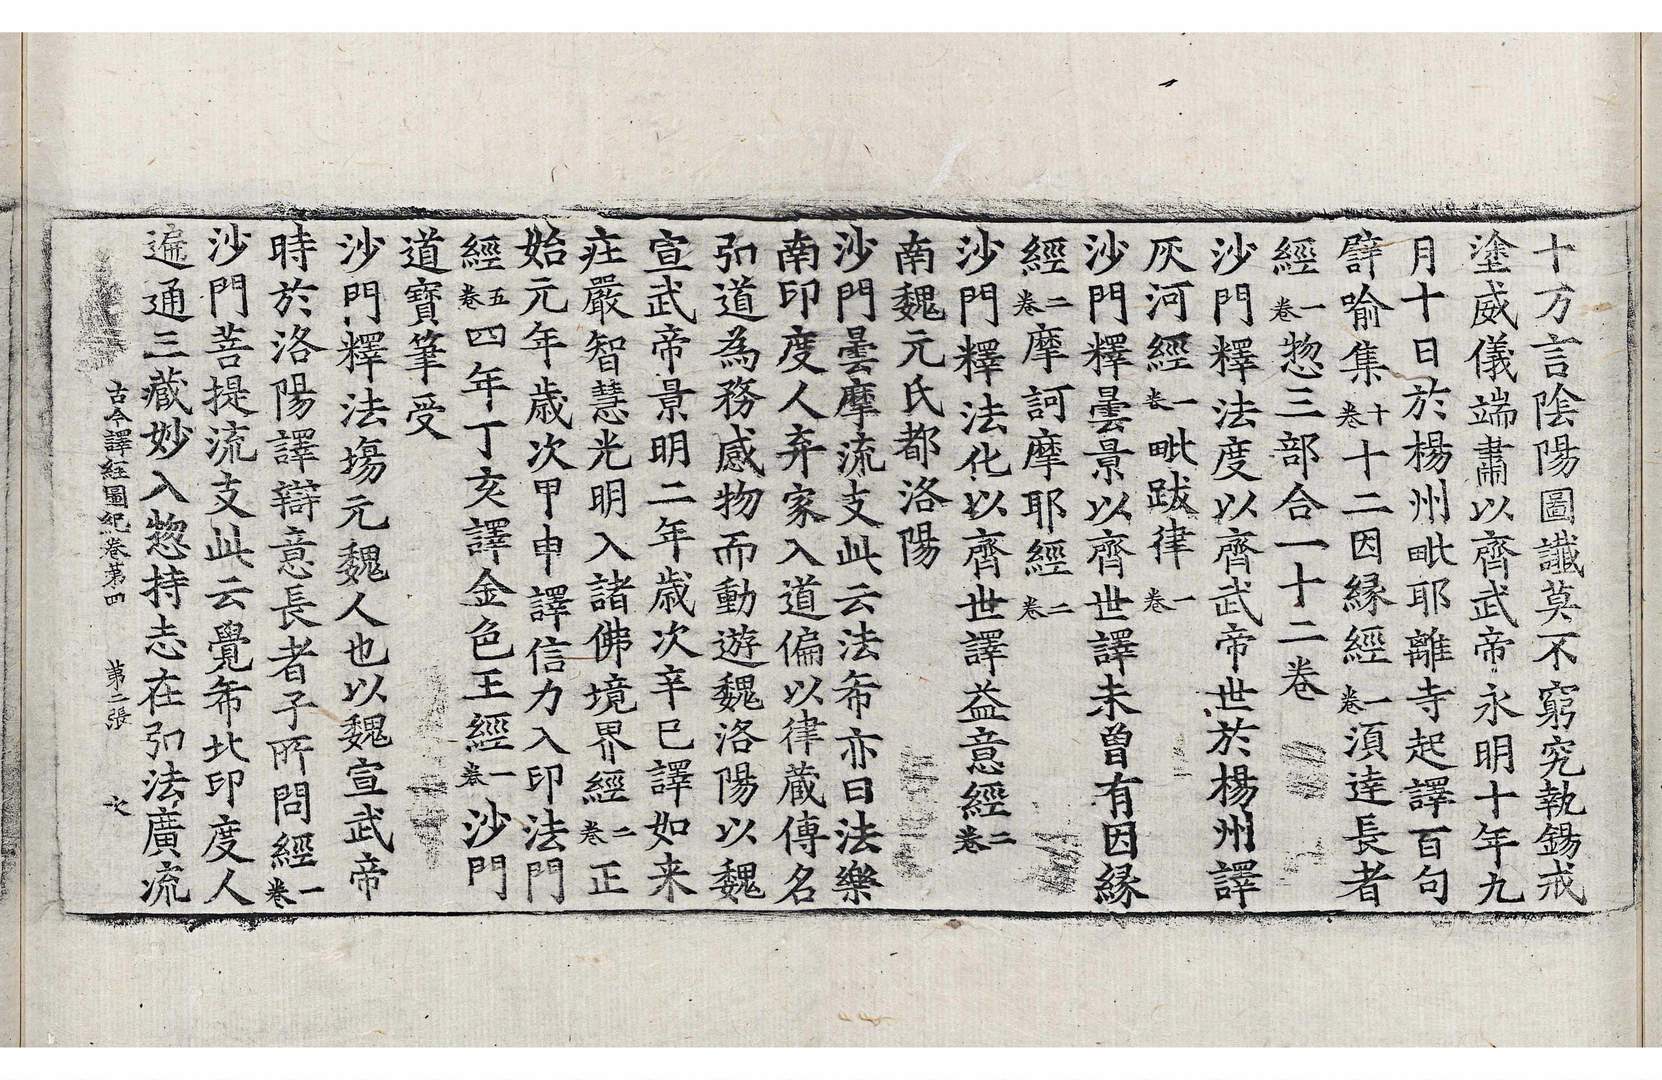 十方言陰陽圖讖莫不窮究執錫戒
塗威儀端肅以齊武帝永明十年九
月十日於楊州毗耶離寺起譯百句
譬喻集十卷十二因縁經一卷湏達長者
經一卷惣三部合一十二卷
沙門釋法度以齊武帝世於楊州譯
灰河經一卷毗跋律一卷
沙門釋曇景以齊世譯未曾有因縁
經二卷摩訶摩耶經二卷
沙門釋法化以齊世譯益意經二卷
南魏元氏都洛陽
沙門曇摩流支此云法希亦曰法樂
南印度人弃家入道偏以律蔵傳名
弘道為務感物而動遊魏洛陽以魏
宣武帝景明二年歳次辛巳譯如来
庄嚴智慧光明入諸佛境界經二卷正
始元年歳次甲申譯信力入印法門
經五卷四年丁亥譯金色王經一卷沙門
道寶筆受
沙門釋法塲元魏人也以魏宣武帝
時於洛陽譯辯意長者子所問經一卷
沙門菩提流支此云覺希北印度人
遍通三藏妙入惣持志在弘法廣流
古今譯經圖紀卷第四 第二張 次